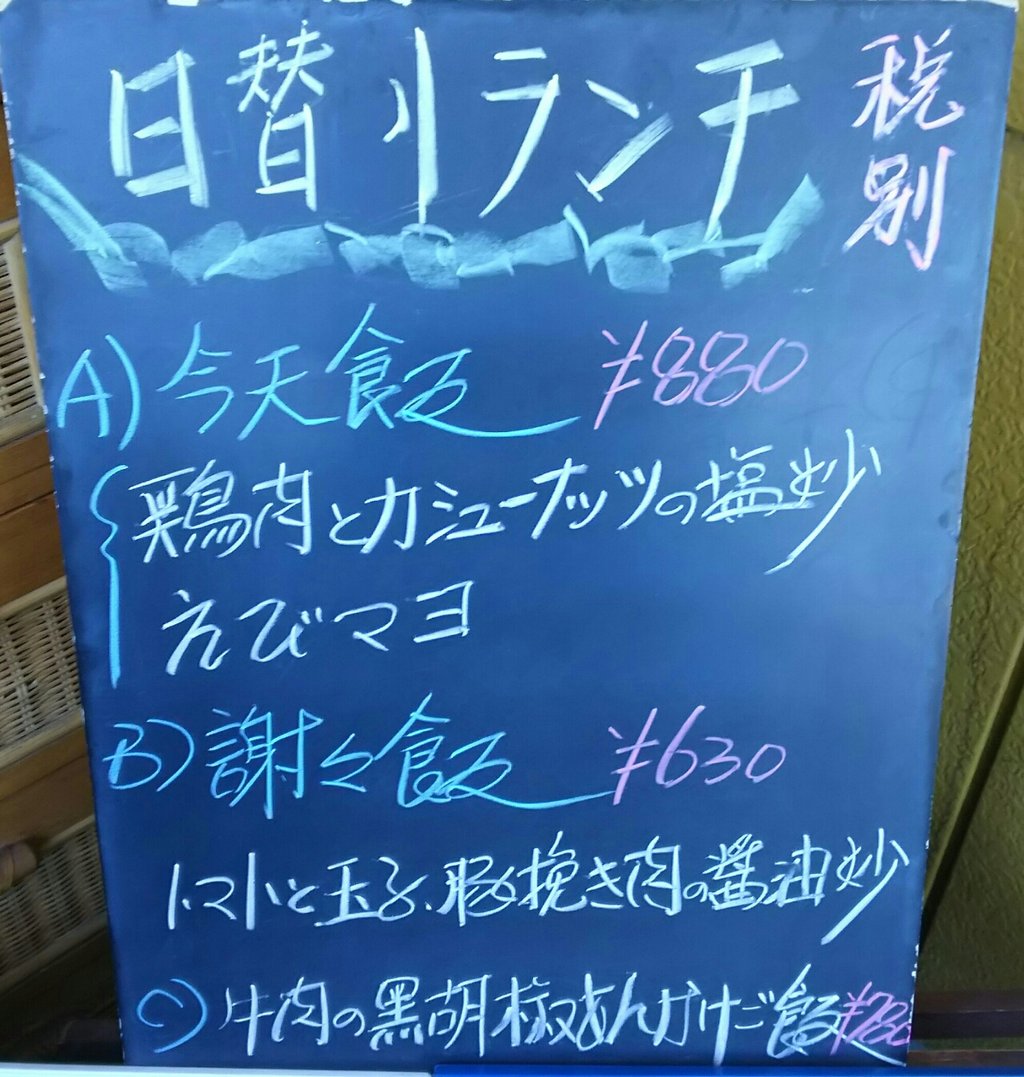 日替りランチ
税別
A) 今天飯 ¥880
鶏肉とカシューナッツの塩炒
えびマヨ
B) 謝々飯 ¥630
トマトと玉子、豚挽き肉の醤油炒
C) 牛肉の黒胡椒あんかけご飯 ¥780